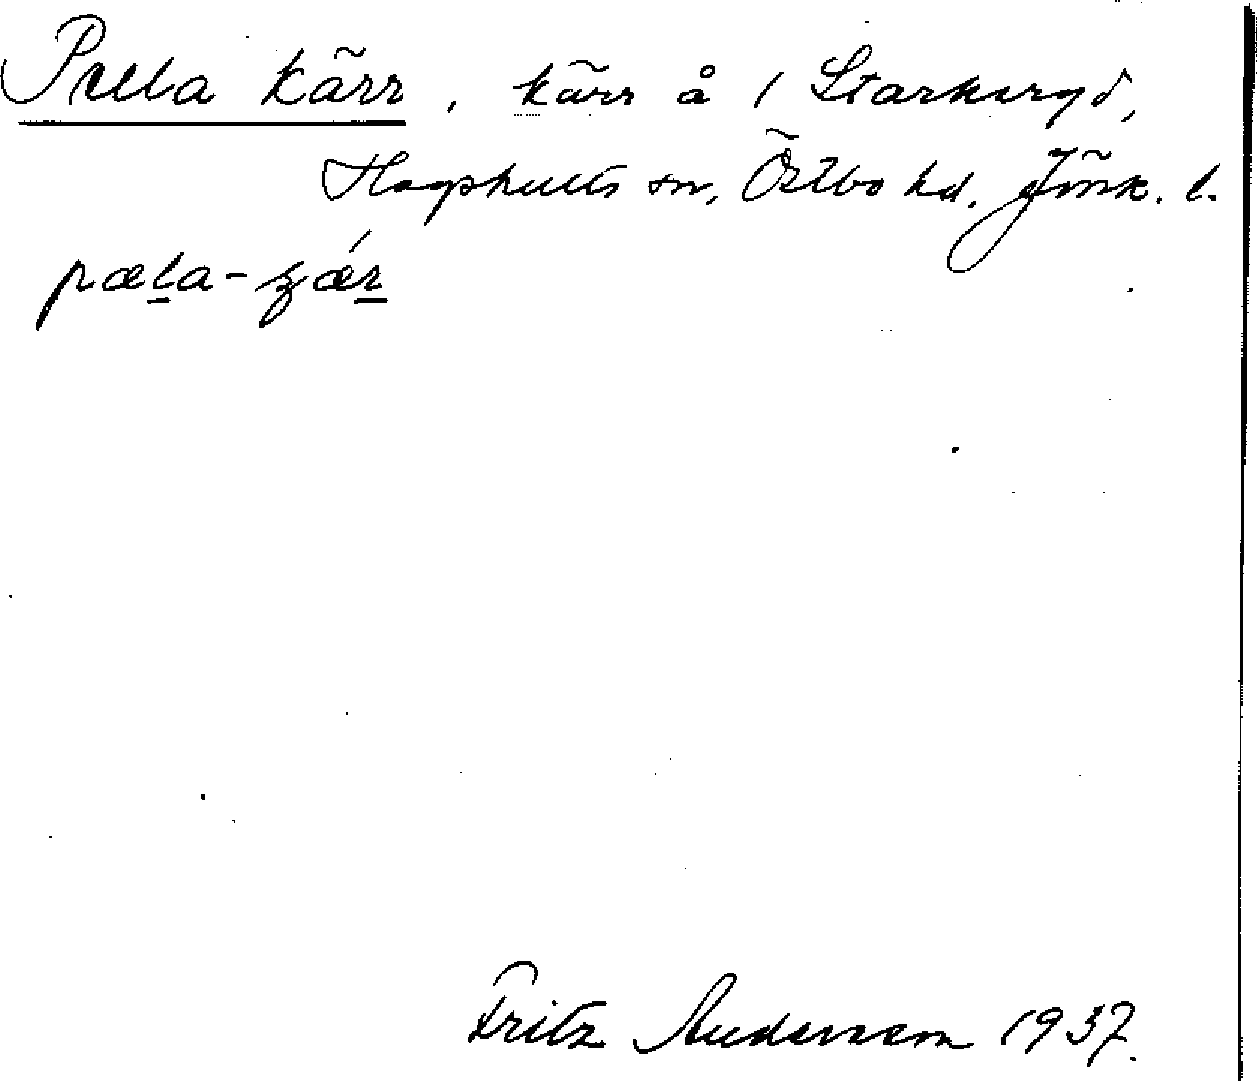 Pella kärr, kärr å 1 Starkeryd,
Hagshults sn, Östbo hd. Jönk. l.
pæla-ʒǽr
Fritz Andersson 1937.